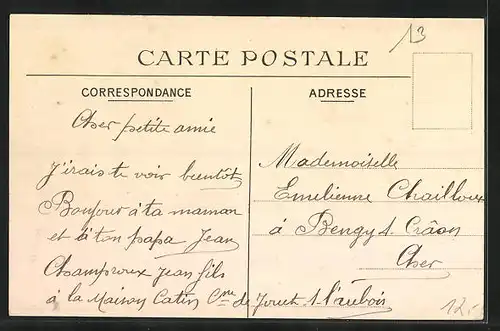 13
CARTE POSTALE
CORRESPONDANCE
Cher petite amie
j'irais te voir beentôt
Bonjour à ta maman
et à ton papa Jean
Champroux jean fils
à la Maison Catin Cne de Jouet s. l'aubois
ADRESSE
Mademoiselle
Emelienne Chailloux
à Bengy s. Crâon
Cher
12.-